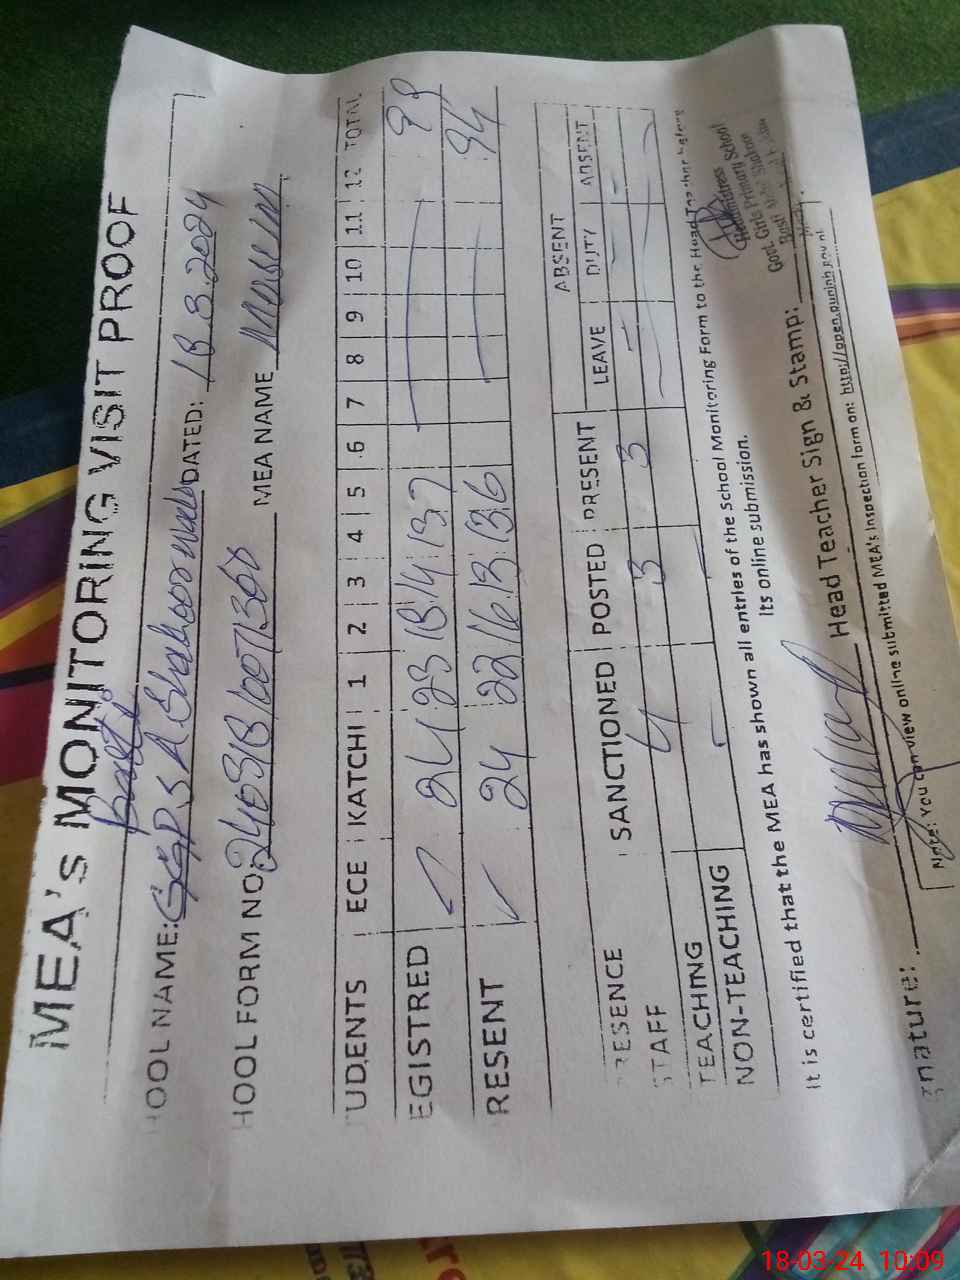 MEA's MONITORING VISIT PROOF
Basti
HOOL NAME: GGPS A Shakoor wala DATED: 18.3.2024
HOOL FORM NO. MEA NAME
UDENTS ECE KATCHI 1 2 3 4 5 6 7 8 9 10 11 12 TOTAL
EGISTRED 24 23 18 14 13 7 99
RESENT 24 22 16 13 13 6 94
ABSENT
RESENCE SANCTIONED POSTED PRESENT LEAVE DUTY ABSENT
STAFF 4 3 3
TEACHING
NON-TEACHING
It is certified that the MEA has shown all entries of the School Monitoring Form to the Head Teacher before
its online submission.
Headmistress
Govt. Girls Primary School
Basti
gnature: Head Teacher Sign & Stamp:
Note: You can view online submitted MEA's Inspection form on: http://open.punjab.gov.pk
18-03-24 10:09